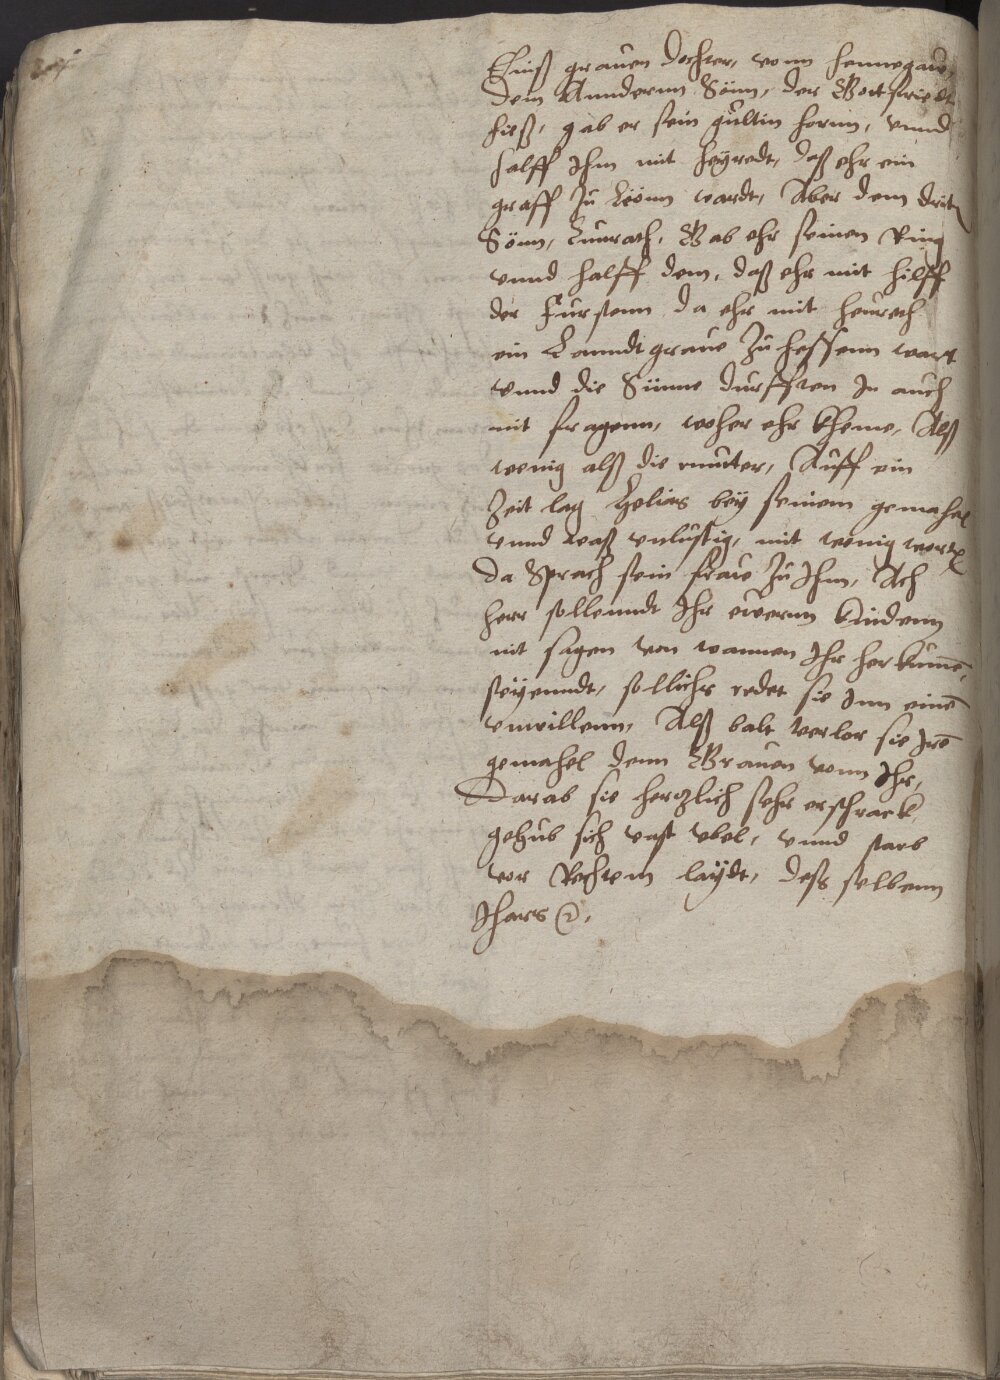 Einß grauen dochter, vonn hennegaue,
dem Anndernn Sönn, der Gotfriedt
hieß, gab er sein gultin hornn, vnnd
halff Ihm mit heyradt, daß ehr ein
graff zu Leönn wardt, Aber dem drit
Sönn, Cunrath, Gab ehr seinen Ring
vnnd halff dem, daß ehr mit hilff
der Furstenn da ehr mit heurath
ein Lanndtgraue zu hessenn wart
vnnd die Sünne durfften In auch
nit fragenn, woher ehr kheme, Alß
wenig alß die muter, Auff ein
Zeit lag Helias bey seinem gemahel
vnnd waß vnlustig, mit wenig worten
da Sprach sein fraue zu Ihm, Ach
herr sollenndt Ihr euernn kindenn
nit sagen von wannen Ihr herkumē
seyenndt, sollichs redet sie Inn einē
vnwillenn, Alß balt verlor sie Irē
gemahel denn Grauen vonn Ihr,
Darab sie herzlich sehr erschrack,
gehub sich vast vbel, vnnd starb
vor Rechtem laydt, deß selbenn
Ihars